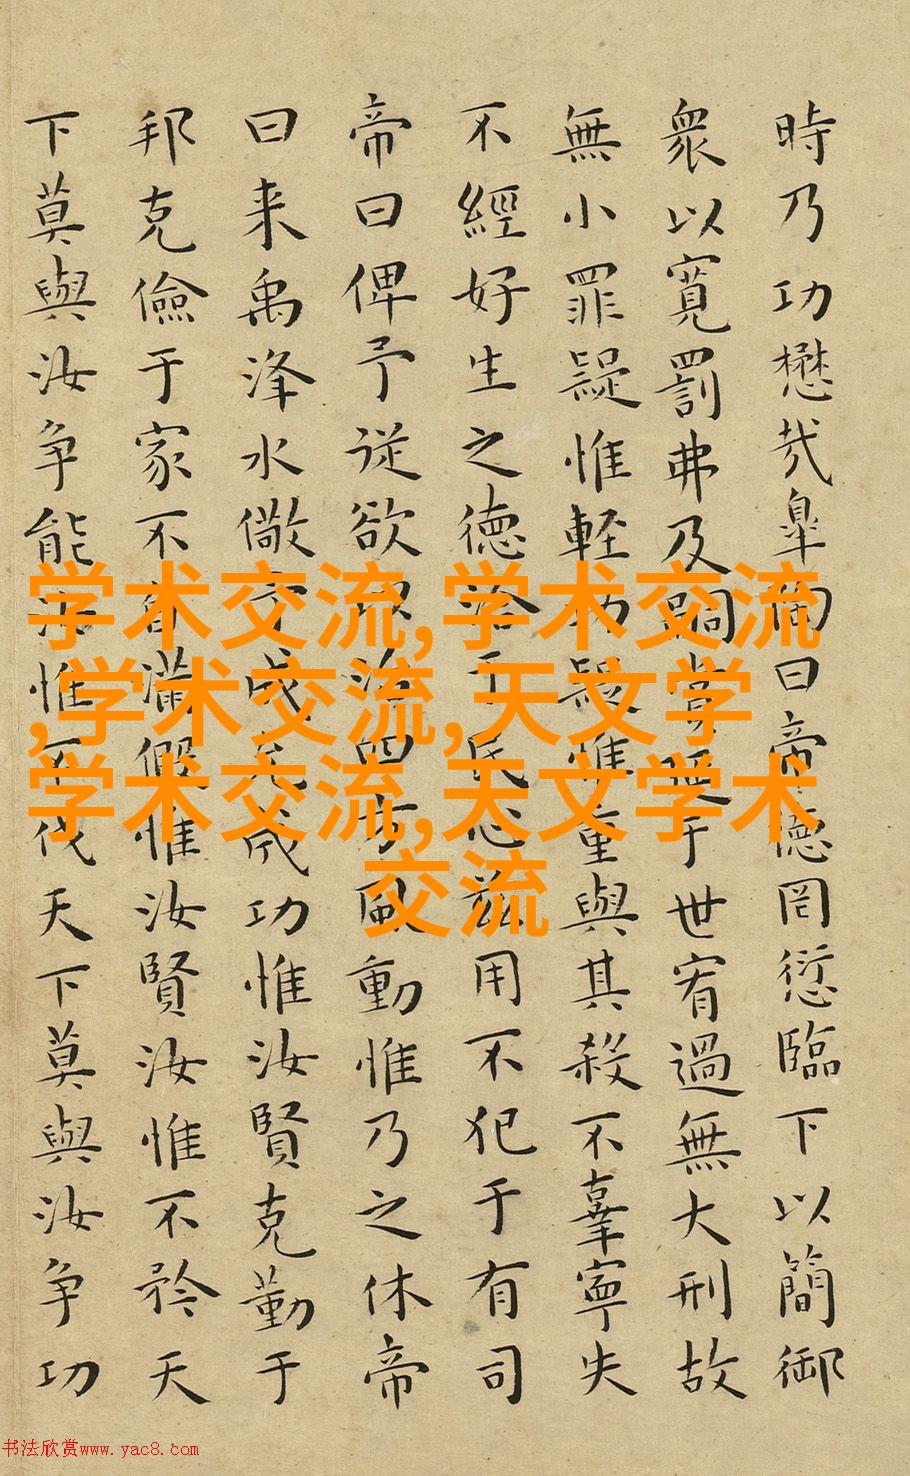 時乃功懋哉皐陶曰帝德罔愆臨下以簡御
衆以寬罰弗及嗣賞延于世宥過無大刑故
無小罪疑惟輕功疑惟重與其殺不辜寧失
不經好生之德洽于民心茲用不犯于有司
帝曰俾予從欲以治四方風動惟乃之休帝
曰来禹洚水儆予成允成功惟汝賢克勤于
邦克儉于家不自滿假惟汝賢汝惟不矜天
下莫與汝争能汝惟不伐天下莫與汝争功
学术交流,学术交流
,学术交流,天文学
学术交流,天文学术
交流
书法欣赏www.yac8.com